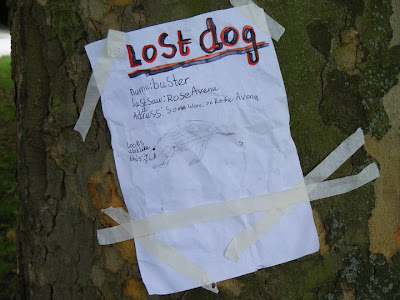 Lost dog
name:buster
last saw:Rose Avena
Adress: Somewere on Rose Avena
Looks
abit like
this: